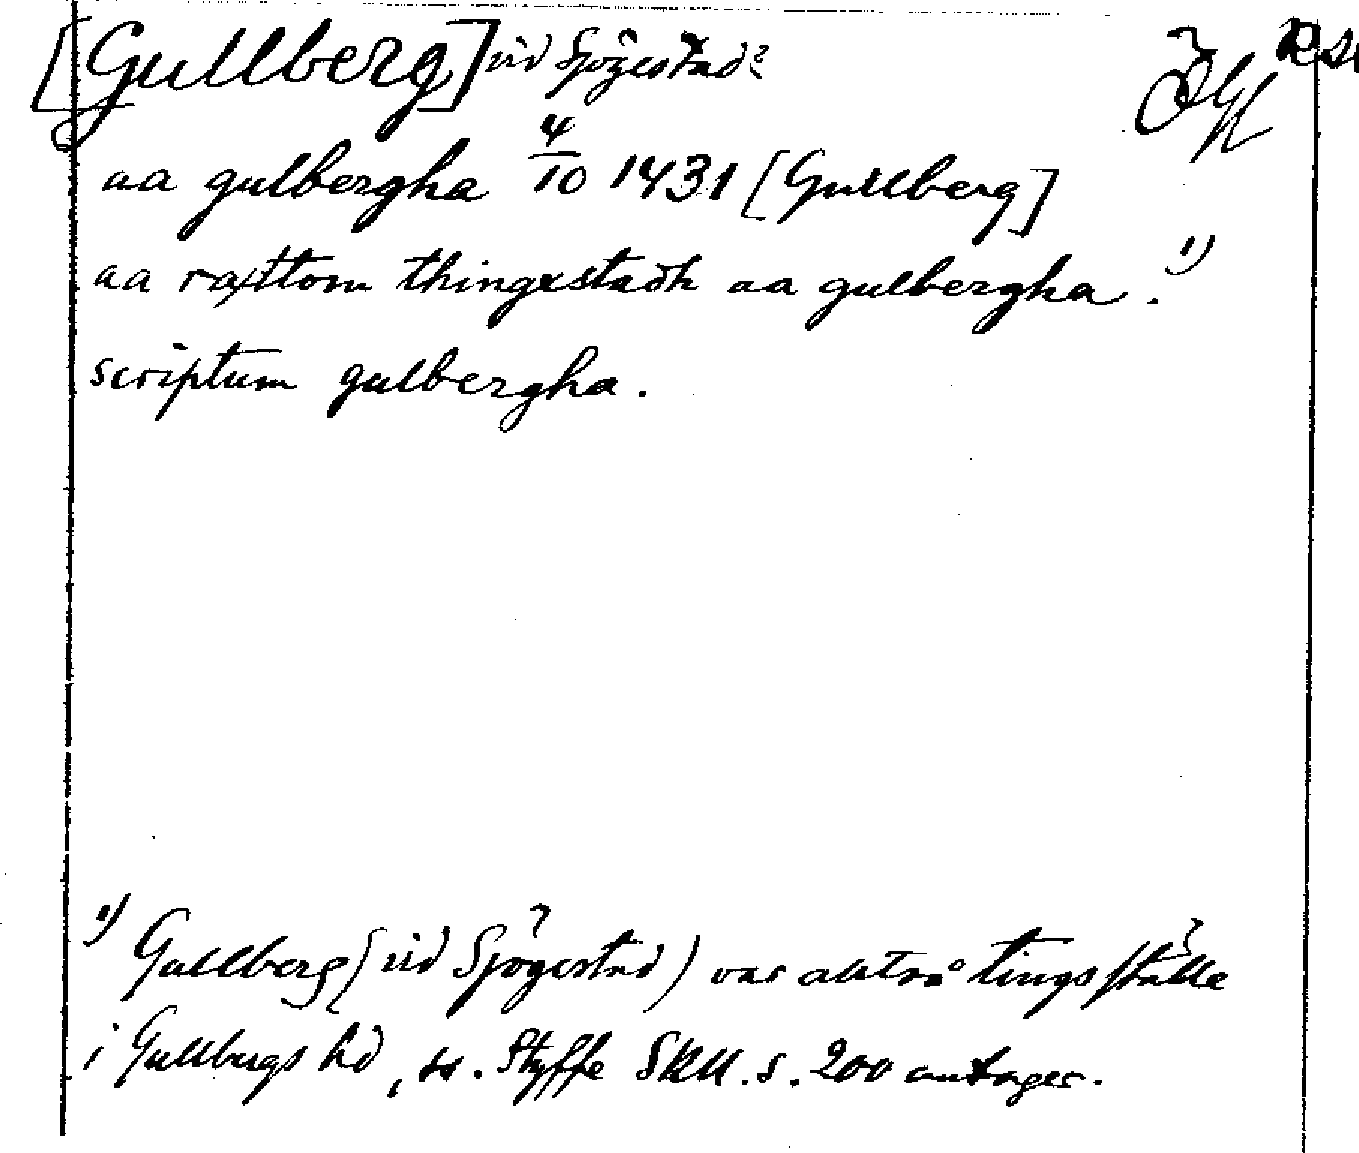 [Gullberg] vid Sjögestad?
aa gulbergha 4/10 1431 [Gullberg]
aa rættom thingxstadh aa gulbergha. 1)
scriptum gulbergha.
1) Gullberg (vid Sjögestad) var tingsställe
i Gullbergs hd, Styffe SKU. s. 200 antager.